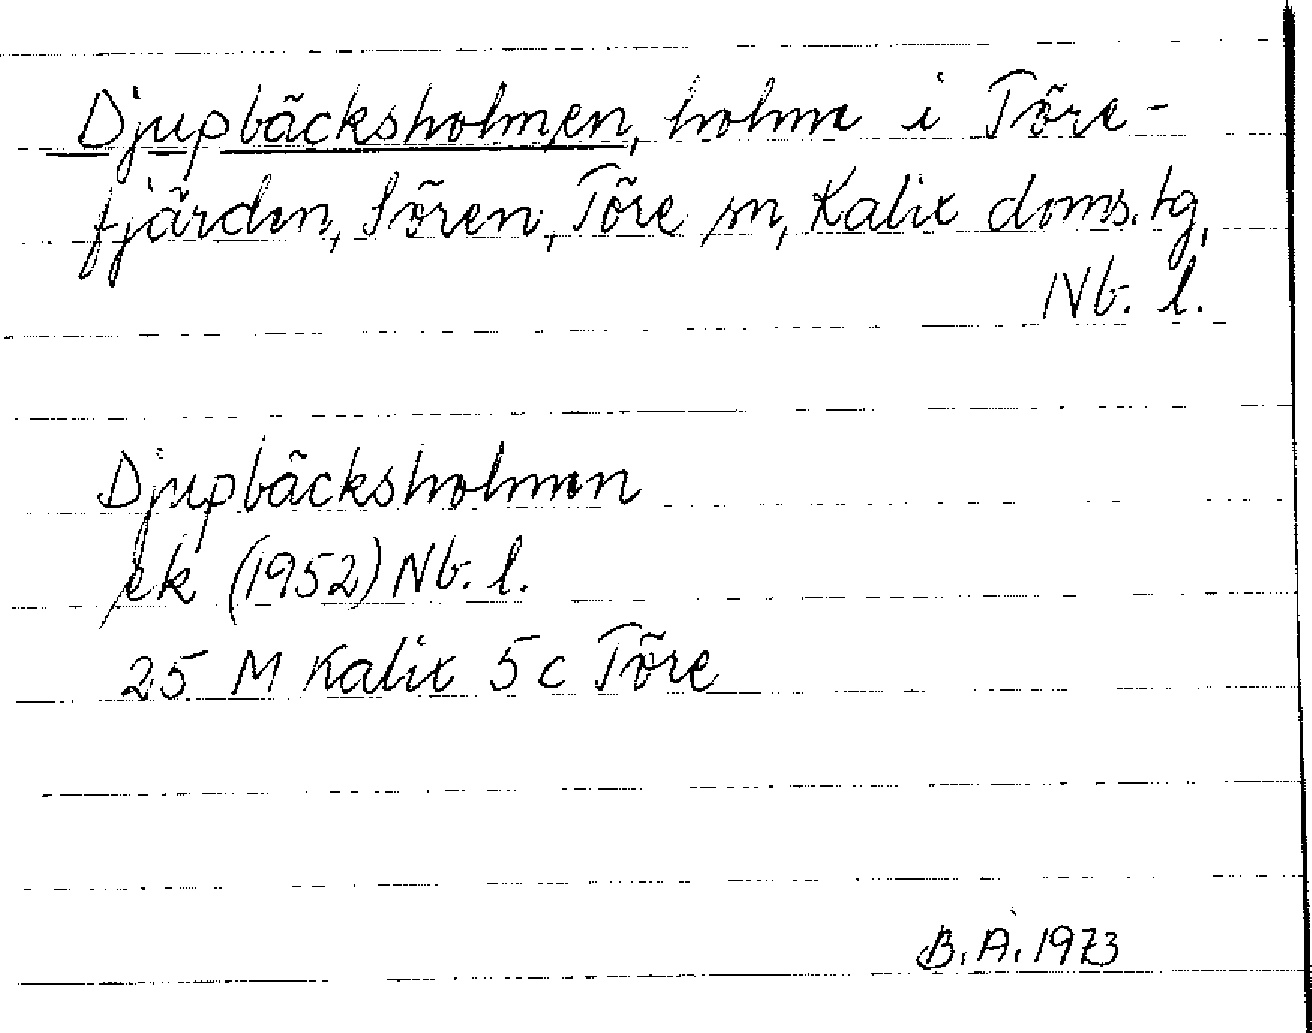 Djupbäcksholmen, holme i Töre-
fjärden, Sören, Töre sn, Kalix doms.tg,
Nb. l.
Djupbäcksholmen
ek (1952) Nb. l.
25 M Kalix 5c Töre
B. Å. 1973